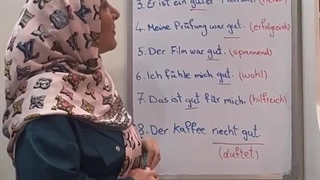 3. Er ist ein guter
4. Meine Prüfung war gut. (erfolgreich)
5. Der Film war gut. (spannend)
6. Ich fühle mich gut. (wohl)
7. Das ist gut für mich. (hilfreich)
8. Der Kaffee riecht gut.
(duftet)